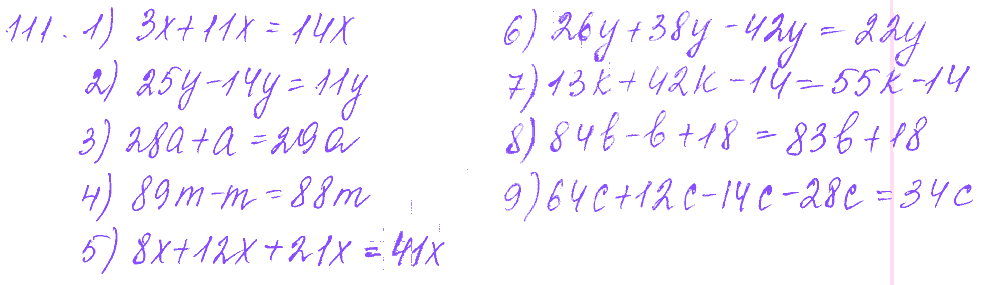 111. 1) 3x+11x=14x
2) 25y-14y=11y
3) 28a+a=29a
4) 89m-m=88m
5) 8x+12x+21x=41x
6) 26y+38y-42y=22y
7) 13k+42k-14=55k-14
8) 84b-b+18=83b+18
9) 64c+12c-14c-28c=34c